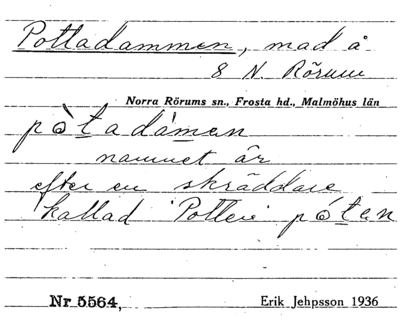 Pottadammen, mad å
8 N. Rörum
Norra Rörums sn., Frosta hd., Malmöhus län
pòtadámen
namnet är
efter en skräddare
kallad "Potten" póten
Nr 5564, Erik Jehpsson 1936